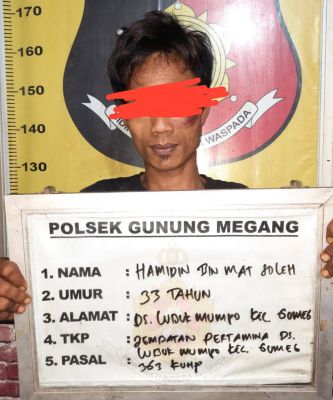 170
160
150
140
130
WASPADA
POLSEK GUNUNG MEGANG
1. NAMA : HAMIDIN BIN MAT SOLEH
2. UMUR : 33 TAHUN
3. ALAMAT : DS. LUBUK MUMPO KEC. GUMEG
4. TKP : JEMBATAN PERTAMINA DS.
LUBUK MUMPO KEC. GUMEG
5. PASAL : 363 KUHP